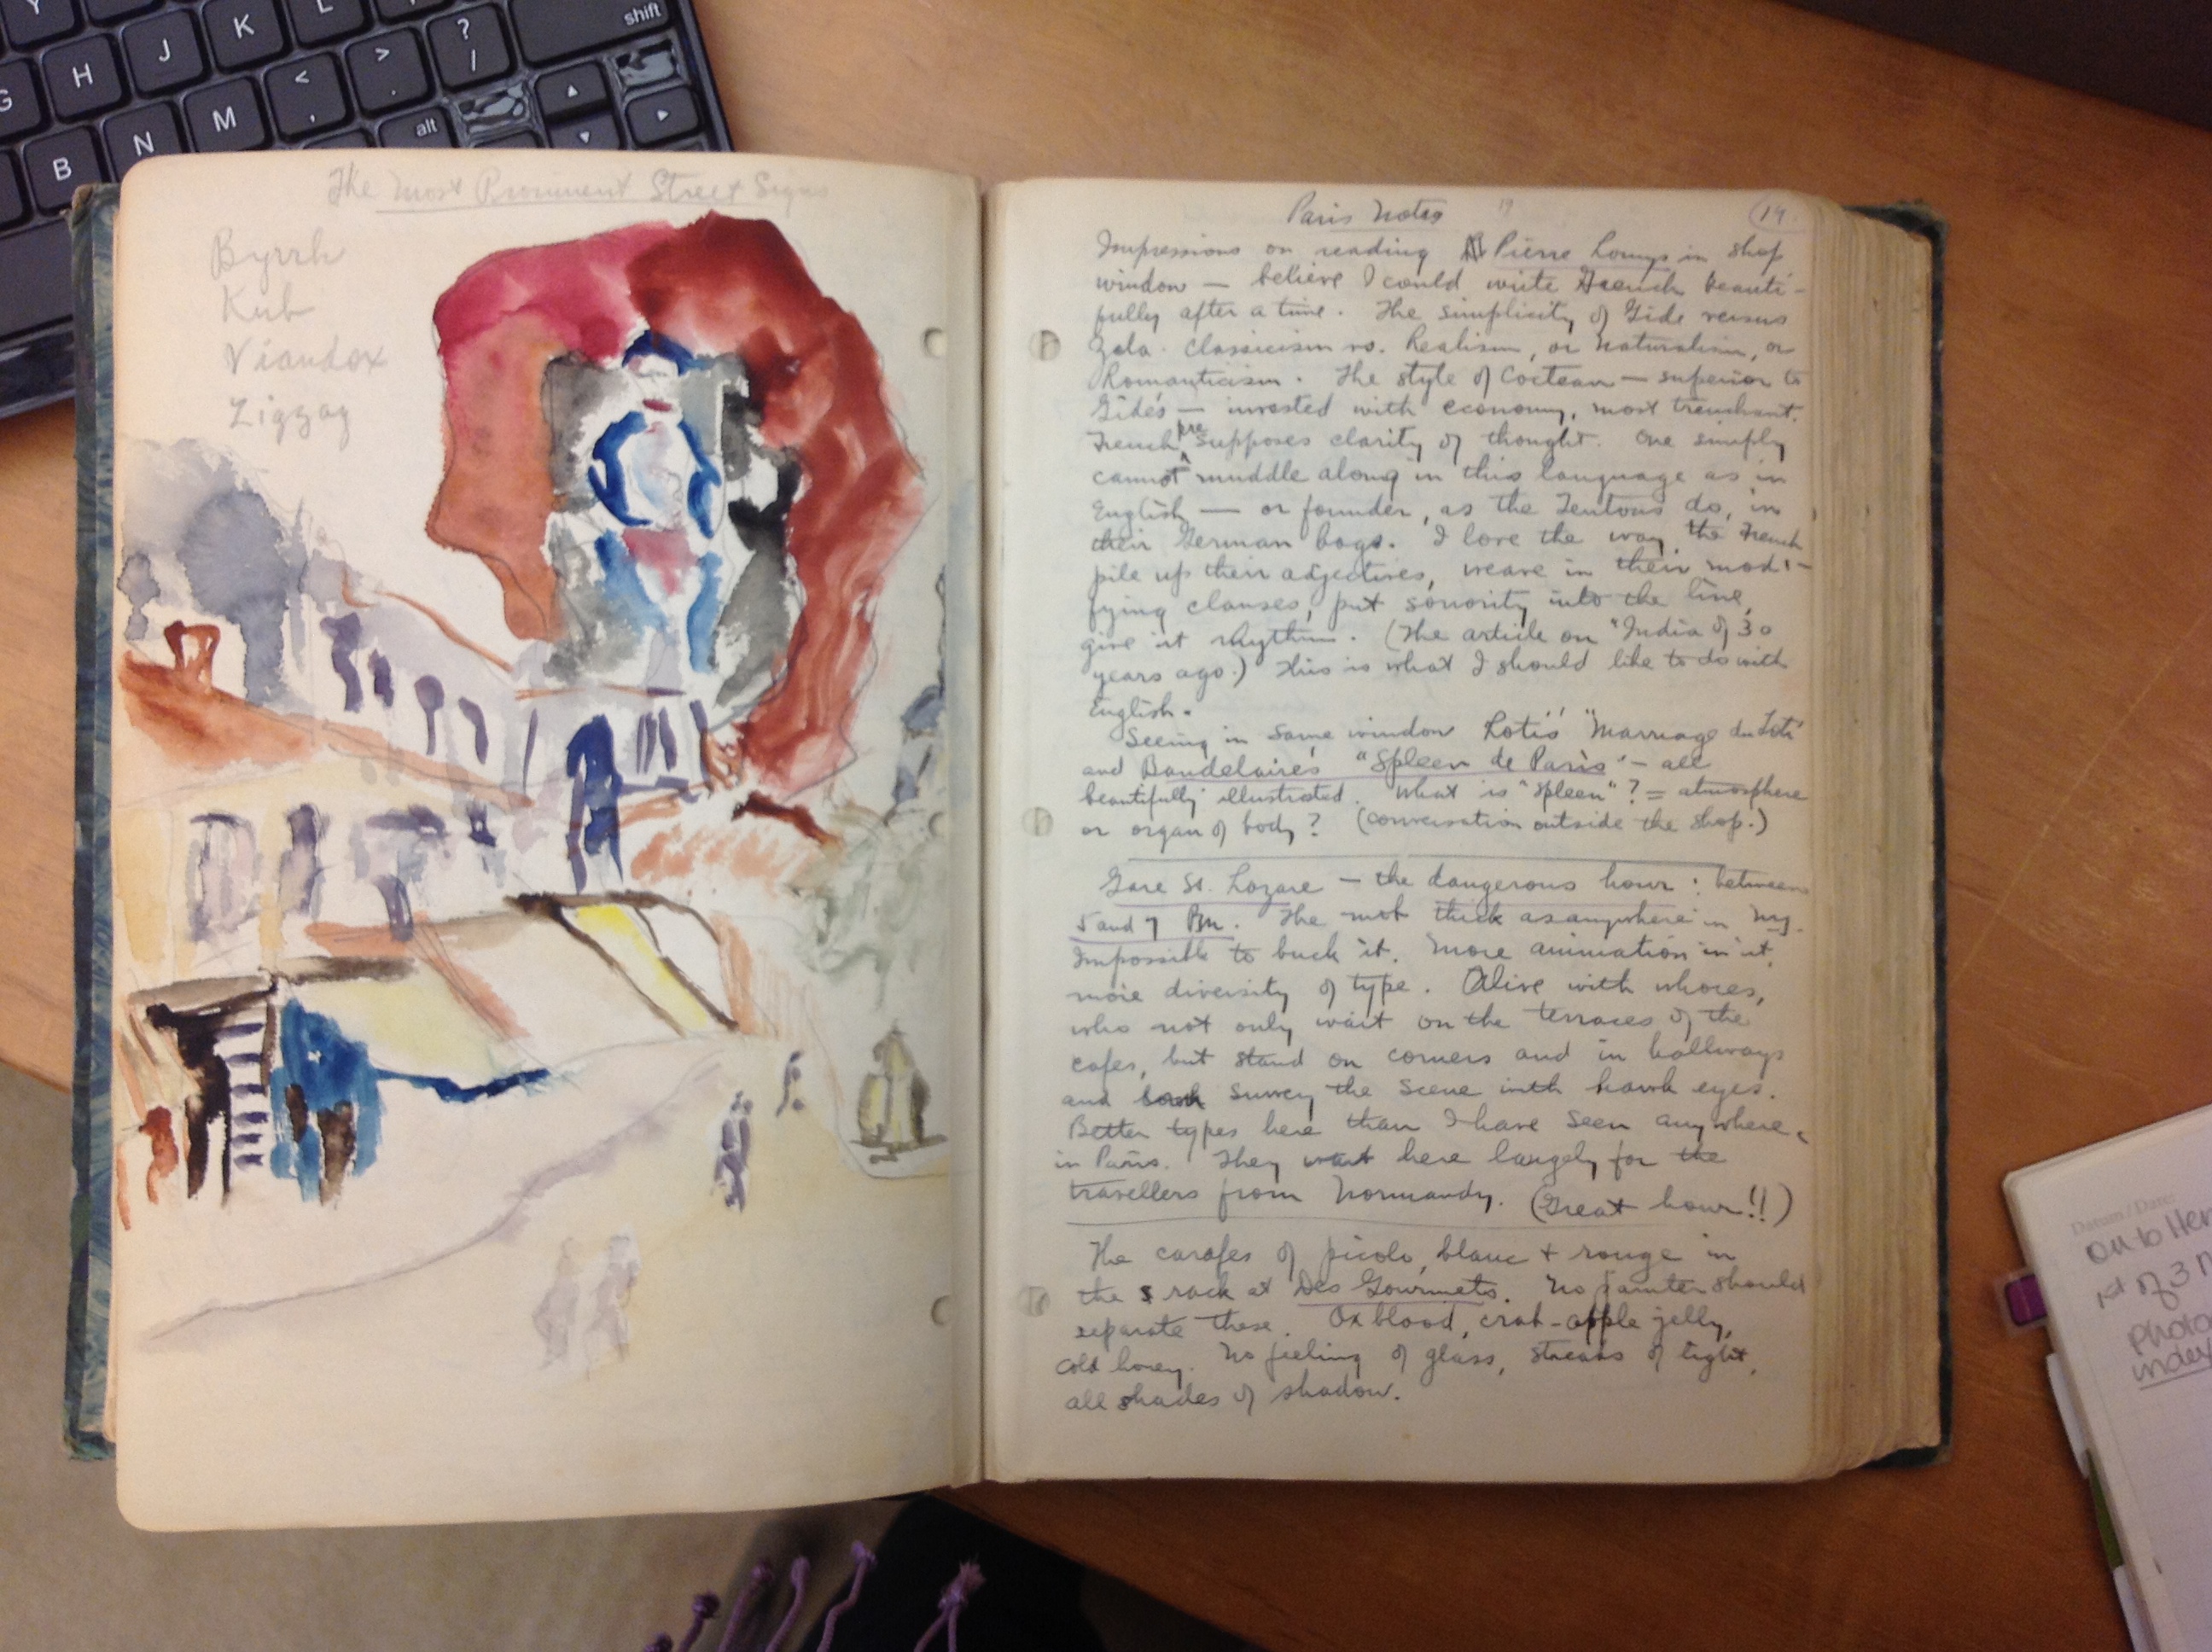 shift
J
K
L
?
/
G
H
<
,
>
.
B
N
M
alt
The Most Prominent Street Signs
Byrrh
Kub
Viandox
Zigzag
Paris Notes 19
14.
Impressions on reading Pierre Louys in shop
window — believe I could write French beauti-
fully after a time. The simplicity of Gide versus
Zola. Classicism vs. Realism, or Naturalism, or
Romanticism. The style of Cocteau — superior to
Gide's — invested with economy, most trenchant.
French presupposes clarity of thought. One simply
cannot muddle along in this language as in
English — or founder, as the Teutons do, in
their German bogs. I love the way the French
pile up their adjectives, weave in their modi-
fying clauses, put sonority into the line,
give it rhythm. (The article on "India of 30
years ago.) This is what I should like to do with
English.
Seeing in same window Loti's "Marriage du Loti
and Baudelaire's "Spleen de Paris" — all
beautifully illustrated. What is "Spleen"? = atmosphere
or organ of body? (conversation outside the shop.)
Gare St. Lazare — the dangerous hour: between
5 and 7 PM. The mob thick as anywhere in N.Y.
Impossible to buck it. More animation in it,
more diversity of type. Alive with whores,
who not only wait on the terraces of the
cafes, but stand on corners and in hallways
and survey the scene with hawk eyes.
Better types here than I have seen anywhere
in Paris. They wait here largely for the
travellers from Normandy. (Great hour!!)
The carafes of picolo, blanc + rouge in
the rack at Des Gourmets. No painter should
separate these. Ox blood, crab-apple jelly,
cold honey. No feeling of glass, streaks of light,
all shades of shadow.
Datum / Date:
on to
1st of 3
photo
index